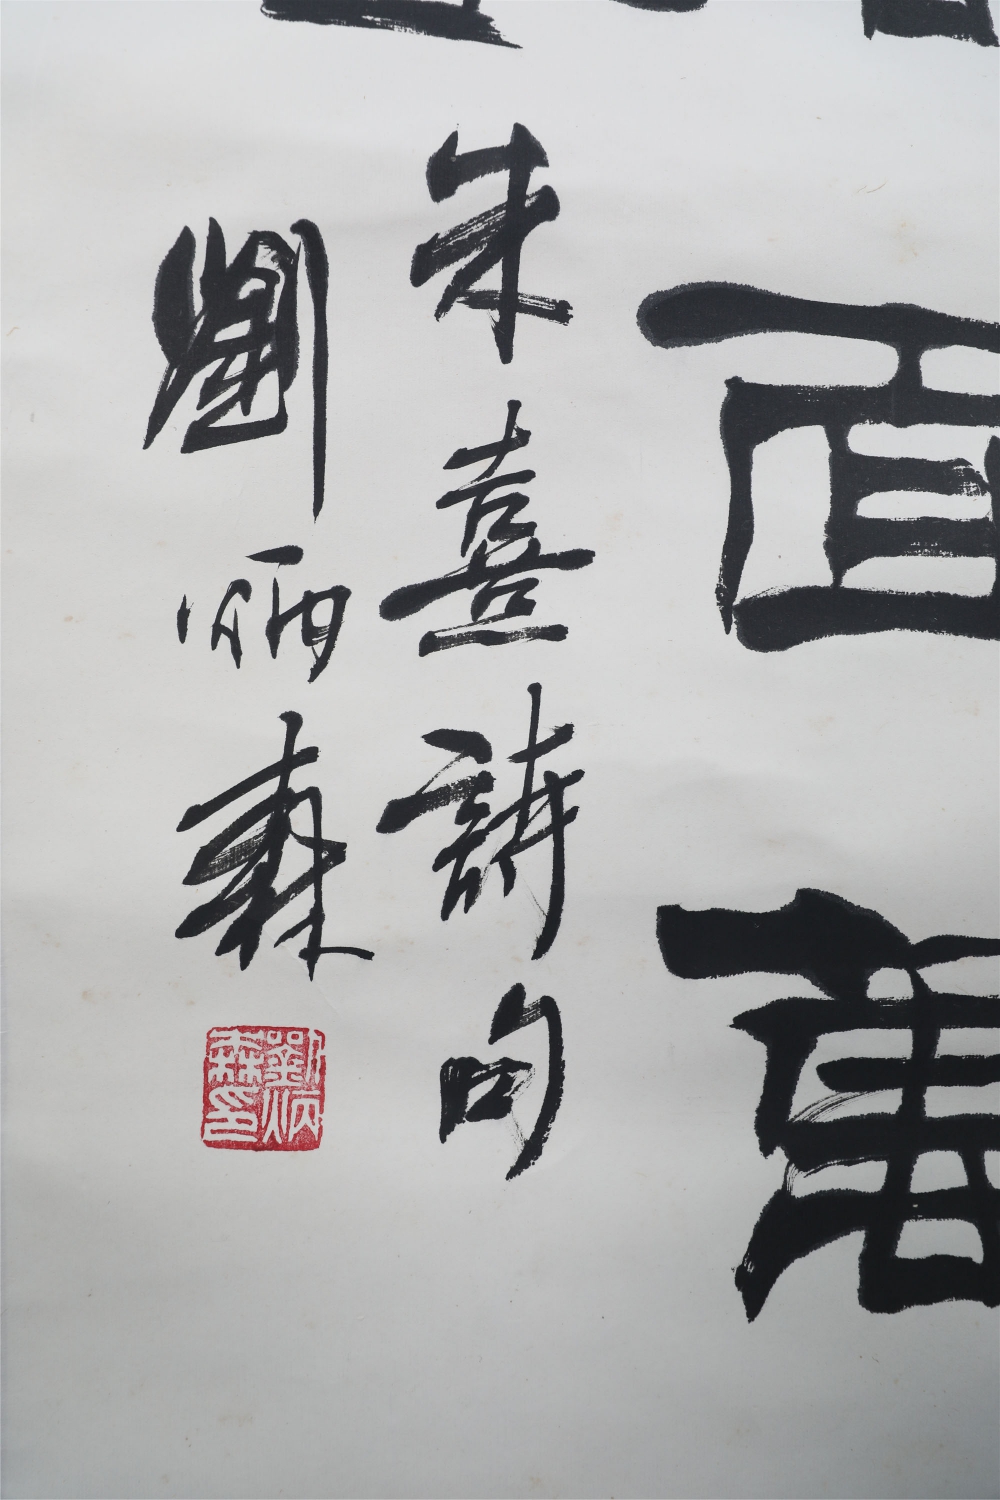 面萬
朱熹詩句
劉炳森
劉炳
森印